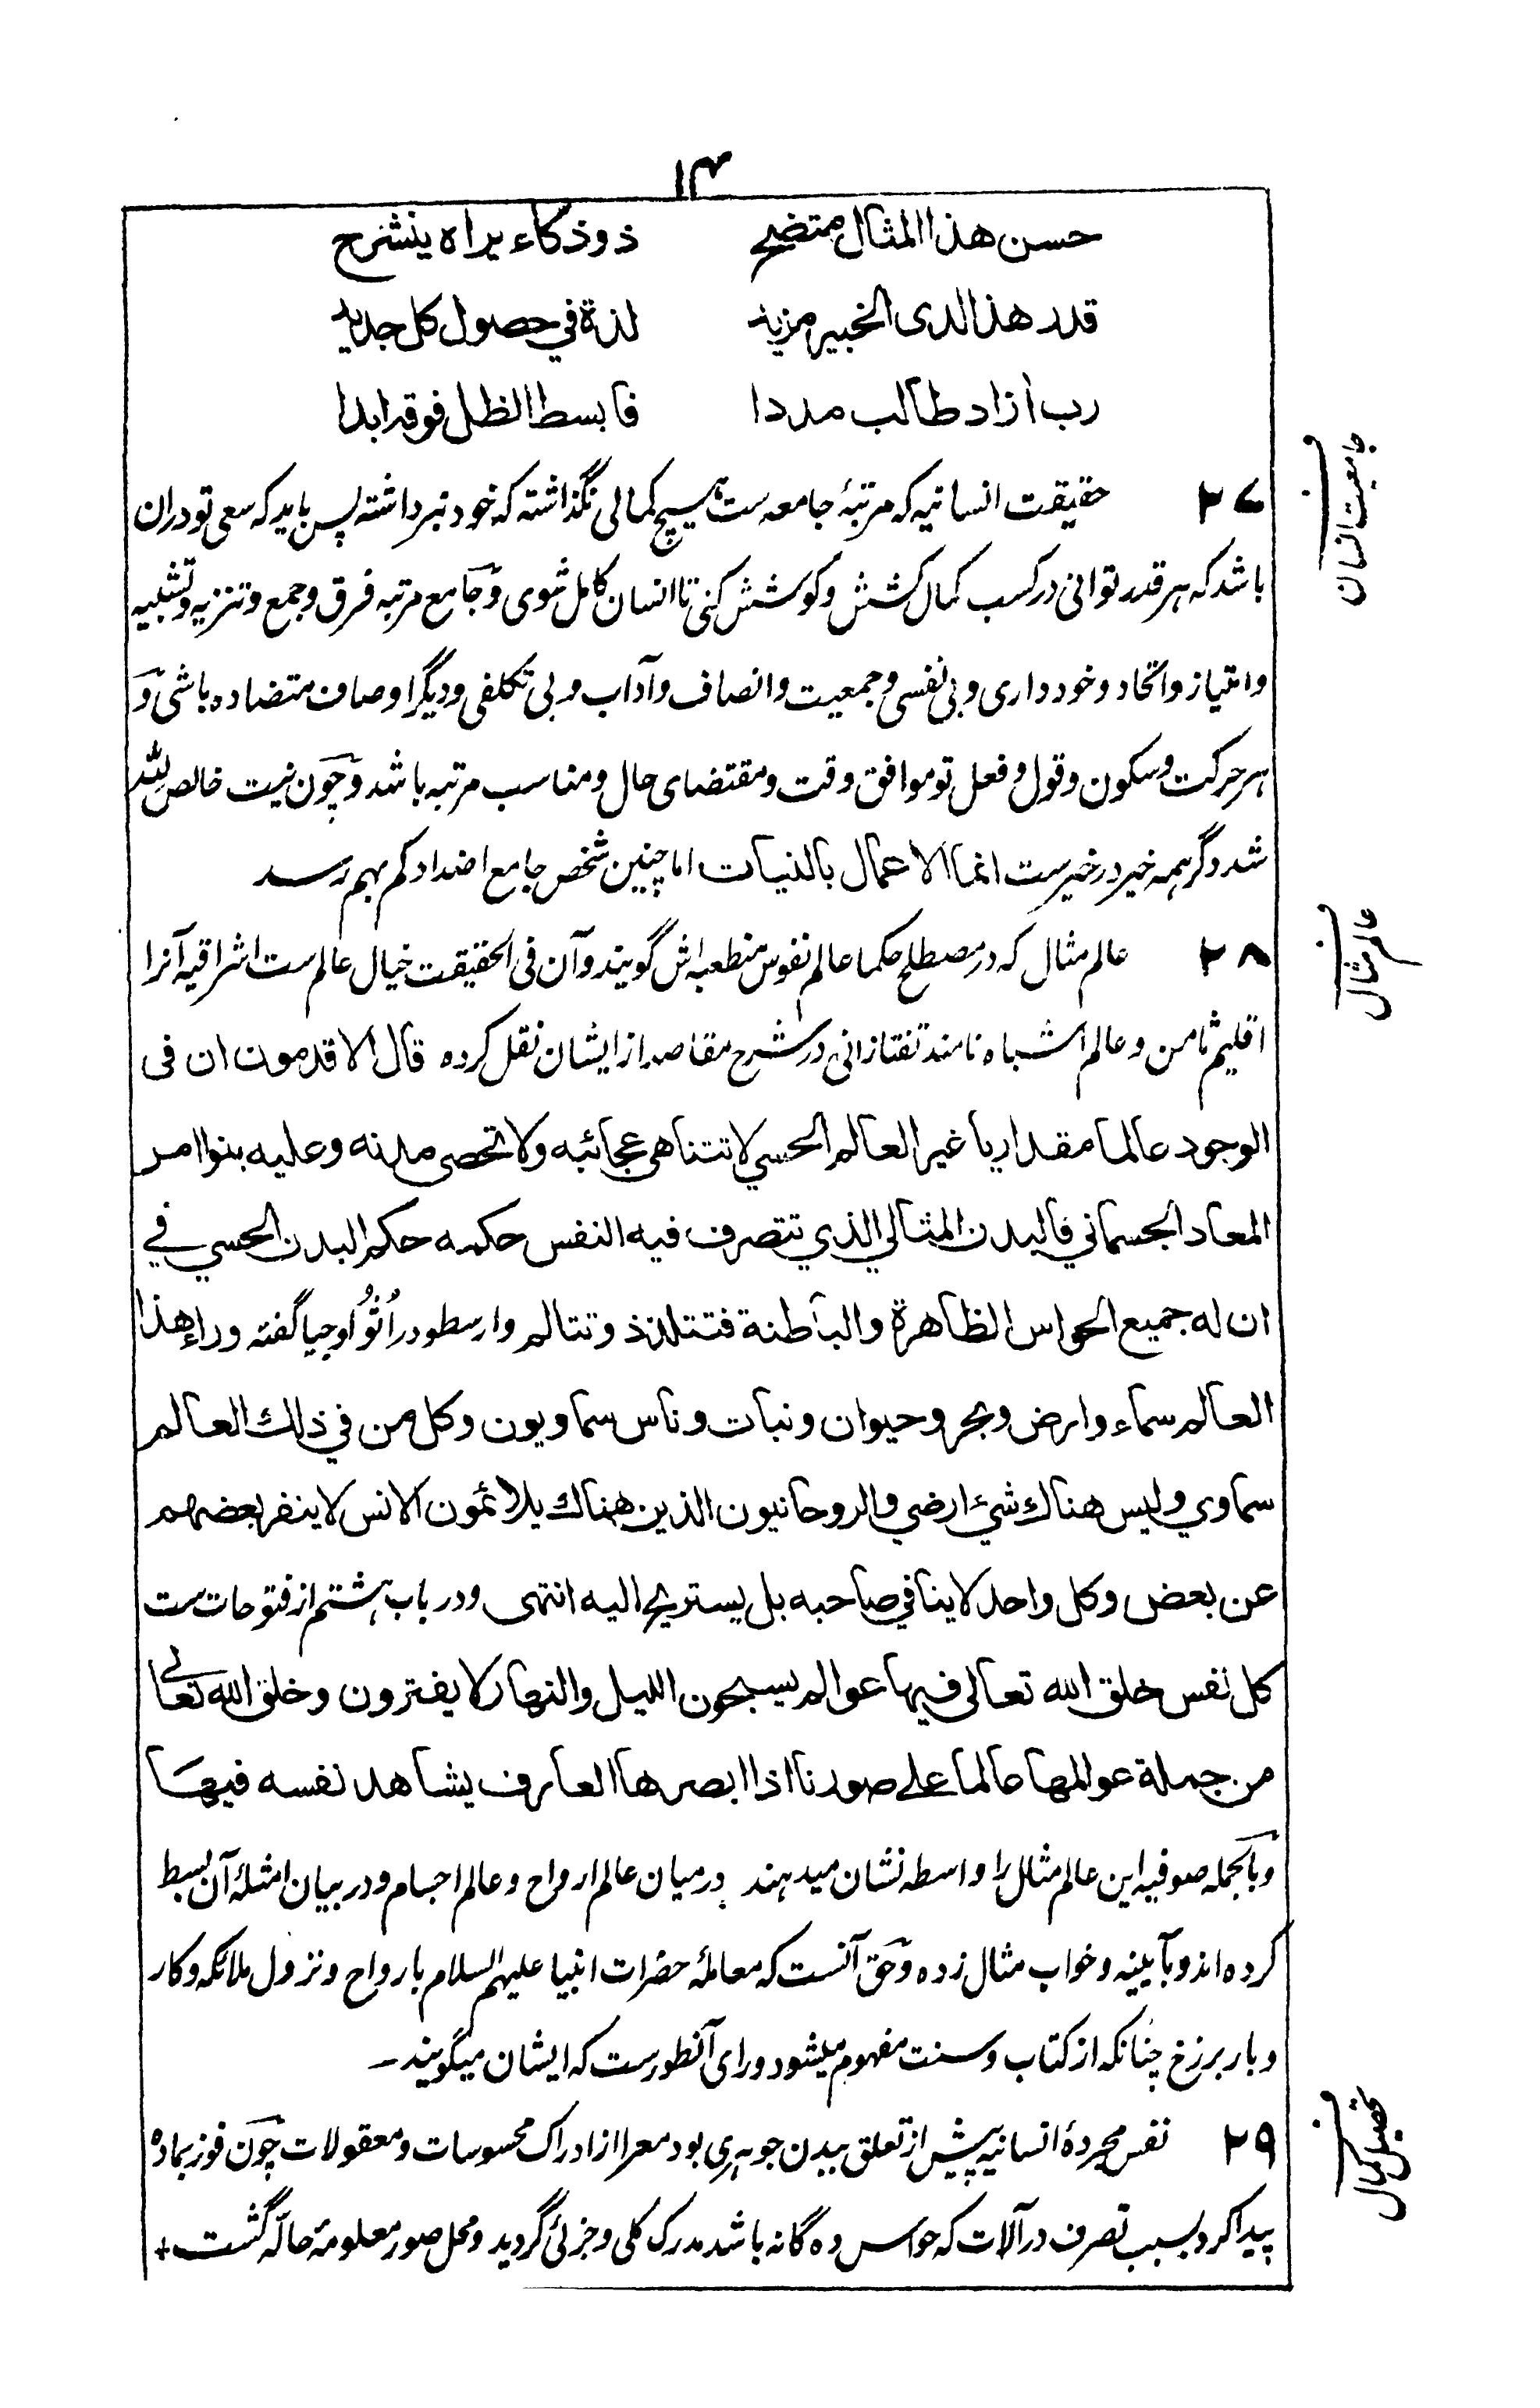 ۱۴
حسن هذا المثال متضح ذو ذكاء يراه ينشرح
قدر هذا لدى الخبير مزيد لذة في حصول كل جديد
رب ازاد طالب مددا فابسط الظل فوقه ابدا
۲۷ حقیقت انسانیه که مرتبۀ جامعه ست هیچ کمالی نگذاشته که خود نبرداشته پس باید که سعی تو دران
جامعیت انسان
باشد که هر قدر توانی در کسب کمال کشش و کوشش کنی تا انسان کامل شوی و جامع مرتبه فرق و جمع و تنزیه و تشبیه
و امتیاز و اتحاد و خودداری و بی نفسی و جمعیت و انصاف و آداب و بی تکلفی و دیگر اوصاف متضاده باشی و
هر حرکت و سکون و قول و فعل تو موافق وقت و مقتضای حال و مناسب مرتبه باشد و چون نیت خالص لله
شد دگر همه خیر در خیرست انما الاعمال بالنیات اما چنین شخص جامع اضداد کم بهم رسد
۲۸ عالم مثال که در مصطلح حکما عالم نفوس منطبعه اش گویند و آن فی الحقیقت خیال عالم ست اشراقیه آنرا
عالم مثال
اقلیم ثامن و عالم اشباه نامند تفتازانی در شرح مقاصد از ایشان نقل کرده قال الاقدمون ان فی
الوجود عالما مقداريا غير العالم الحسي لا تتناهى عجائبه ولا تحصى مدنه وعليه بنوا امر
المعاد الجسماني فالبدن المثالي الذي تتصرف فيه النفس حكمه حكم البدن الحسي في
ان له جميع الحواس الظاهرة والباطنة فتتلذذ وتتالم و ارسطو در اُثُوْلُوجیا گفته وراء هذا
العالم سماء وارض وبحر وحيوان ونبات وناس سماويون وكل من في ذلك العالم
سماوي وليس هناك شئ ارضي والروحانيون الذين هناك يلائمون الانس لا ينفر بعضهم
عن بعض وكل واحد لا ينافي صاحبه بل يستريح اليه انتهى و در باب هشتم از فتوحات ست
كل نفس خلق الله تعالى فيها عوالم يسبحون الليل والنهار لا يفترون وخلق الله تعالى
من جملة عوالمها عالما على صورنا اذا ابصرها العارف يشاهد نفسه فيها
و بالجمله صوفیه این عالم مثال را واسطه نشان میدهند درمیان عالم ارواح و عالم اجسام و در بیان امثلۀ آن بسط
کرده اند و بآیینه و خواب مثال زده و حق آنست که معاملۀ حضرات انبیا علیهم السلام بارواح و نزول ملائکه و کار
و بار برزخ چنانکه از کتاب و سنت مفهوم میشود ورای آنطورست که ایشان میگویند ـ
۲۹ نفس مجردۀ انسانیه پیش از تعلق ببدن جوهری بود معرا از ادراک محسوسات و معقولات چون فوز بماده
تحصیل کمال
پیدا کرد بسبب تصرف در آلات که حواس ده گانه باشد مدرک کلی و جزئی گردید و محل صور معلومۀ حالّه گشت +